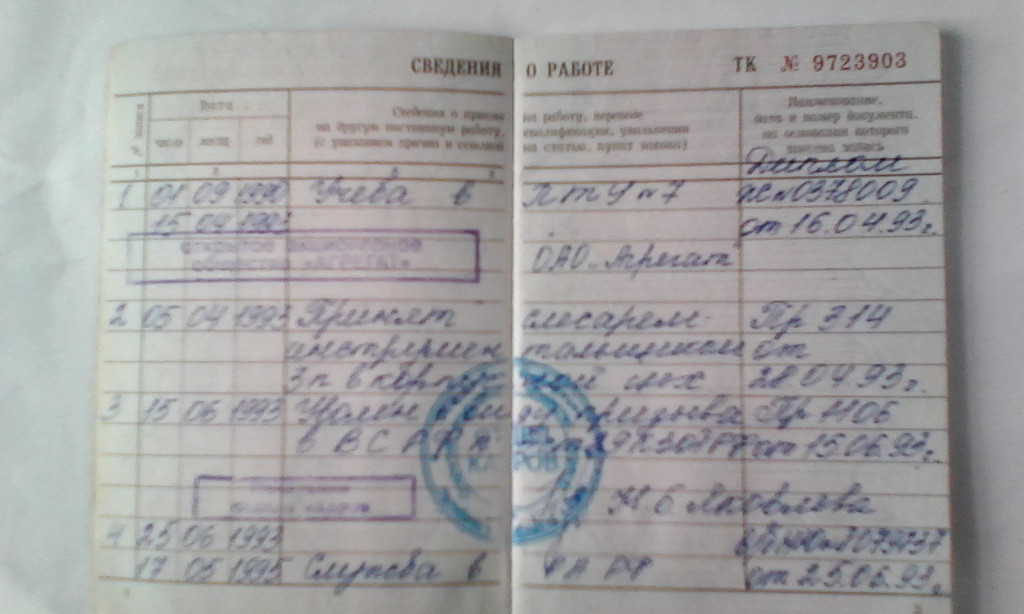 СВЕДЕНИЯ О РАБОТЕ ТК № 9723903
Дата Сведения о приеме на работу, переводе Наименование,
на другую постоянную работу, квалификации, увольнении дата и номер документа,
число месяц год (с указанием причин и ссылкой на статью, пункт закона) на основании которого
внесена запись
Диплом
1 01 09 1990 Учеба в ПТУ №7 №0378009
15 04 1993 от 16.04.93г.
открытое акционерное
общество «АГРЕГАТ» ОАО „Агрегат"
2 05 04 1993 Принят слесарем- Пр 314
инструментальщиком от
3п в цех 28.04.93г.
3 15 06 1993 Уволен в призыва Пр 1106
в ВС РФ РФ от 15.06.93г.
КАДРОВ
Н.Б. Яковлева
4 25 06 1993
17 05 1995 Служба в РА РФ от 25.06.93г.